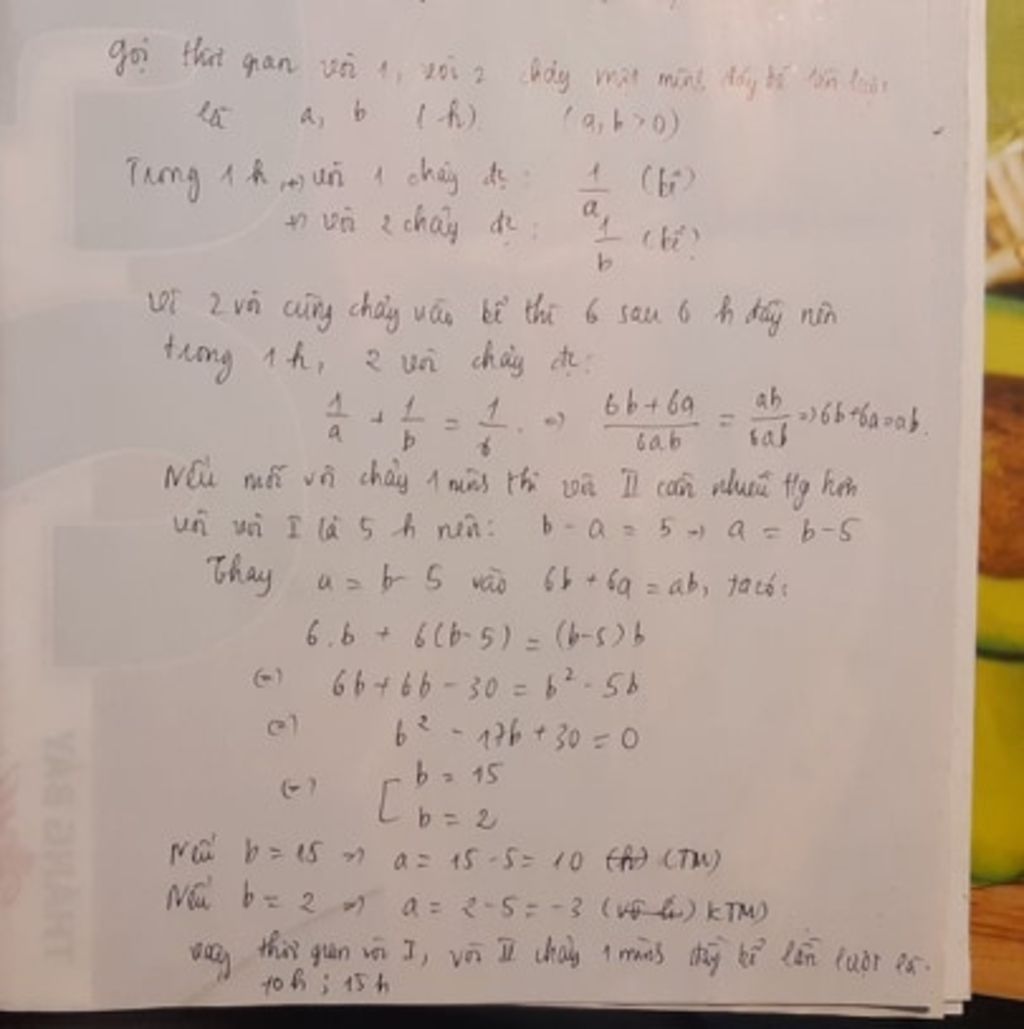 Gọi thời gian vòi 1, vòi 2 chảy một mình đầy bể lần lượt
là a, b (h) (a, b > 0)
Trong 1 h, +) vòi 1 chảy đc: 1/a (bể)
+) vòi 2 chảy đc: 1/b (bể)
Vì 2 vòi cùng chảy vào bể thì 6 sau 6 h đầy nên
trong 1 h, 2 vòi chảy đc:
1/a + 1/b = 1/6. => (6b+6a)/6ab = ab/6ab => 6b+6a=ab.
Nếu mỗi vòi chảy 1 mình thì vòi II cần nhiều tg hơn
với vòi I là 5 h nên: b - a = 5 => a = b - 5
Thay a = b - 5 vào 6b + 6a = ab, ta có:
6.b + 6(b-5) = (b-5)b
(=) 6b + 6b - 30 = b² - 5b
(=) b² - 17b + 30 = 0
(=) [ b = 15
b = 2
Nếu b = 15 => a = 15 - 5 = 10 (h) (TM)
Nếu b = 2 => a = 2 - 5 = -3 (vô lí) KTM)
Vậy thời gian vòi I, vòi II chảy 1 mình đầy bể lần lượt là.
10h ; 15h
THANG BAY